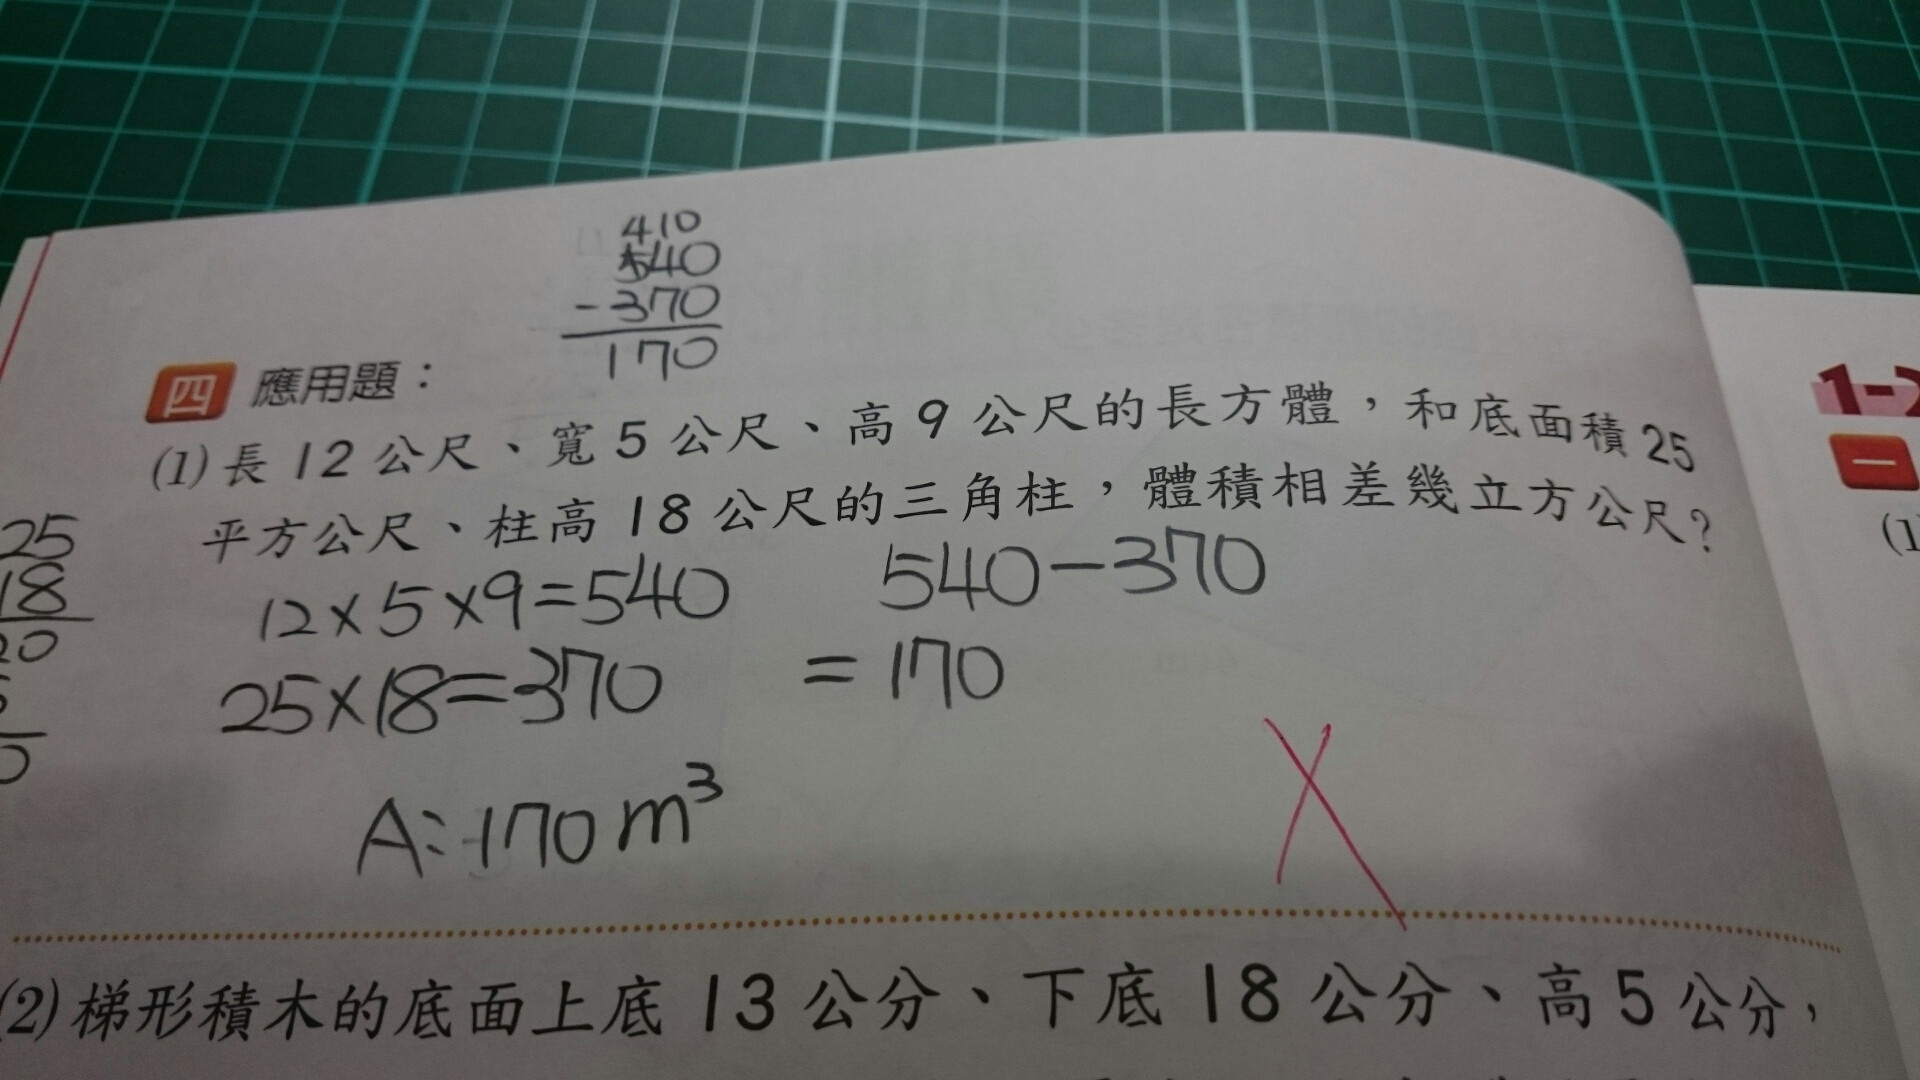 410
540
-370
170
四 應用題：
(1)長12公尺、寬5公尺、高9公尺的長方體，和底面積25
平方公尺、柱高18公尺的三角柱，體積相差幾立方公尺？
12×5×9=540
540-370
25×18=370
=170
A:170m³
25
18
20
0
(2)梯形積木的底面上底13公分、下底18公分、高5公分，
1-2
一
(1